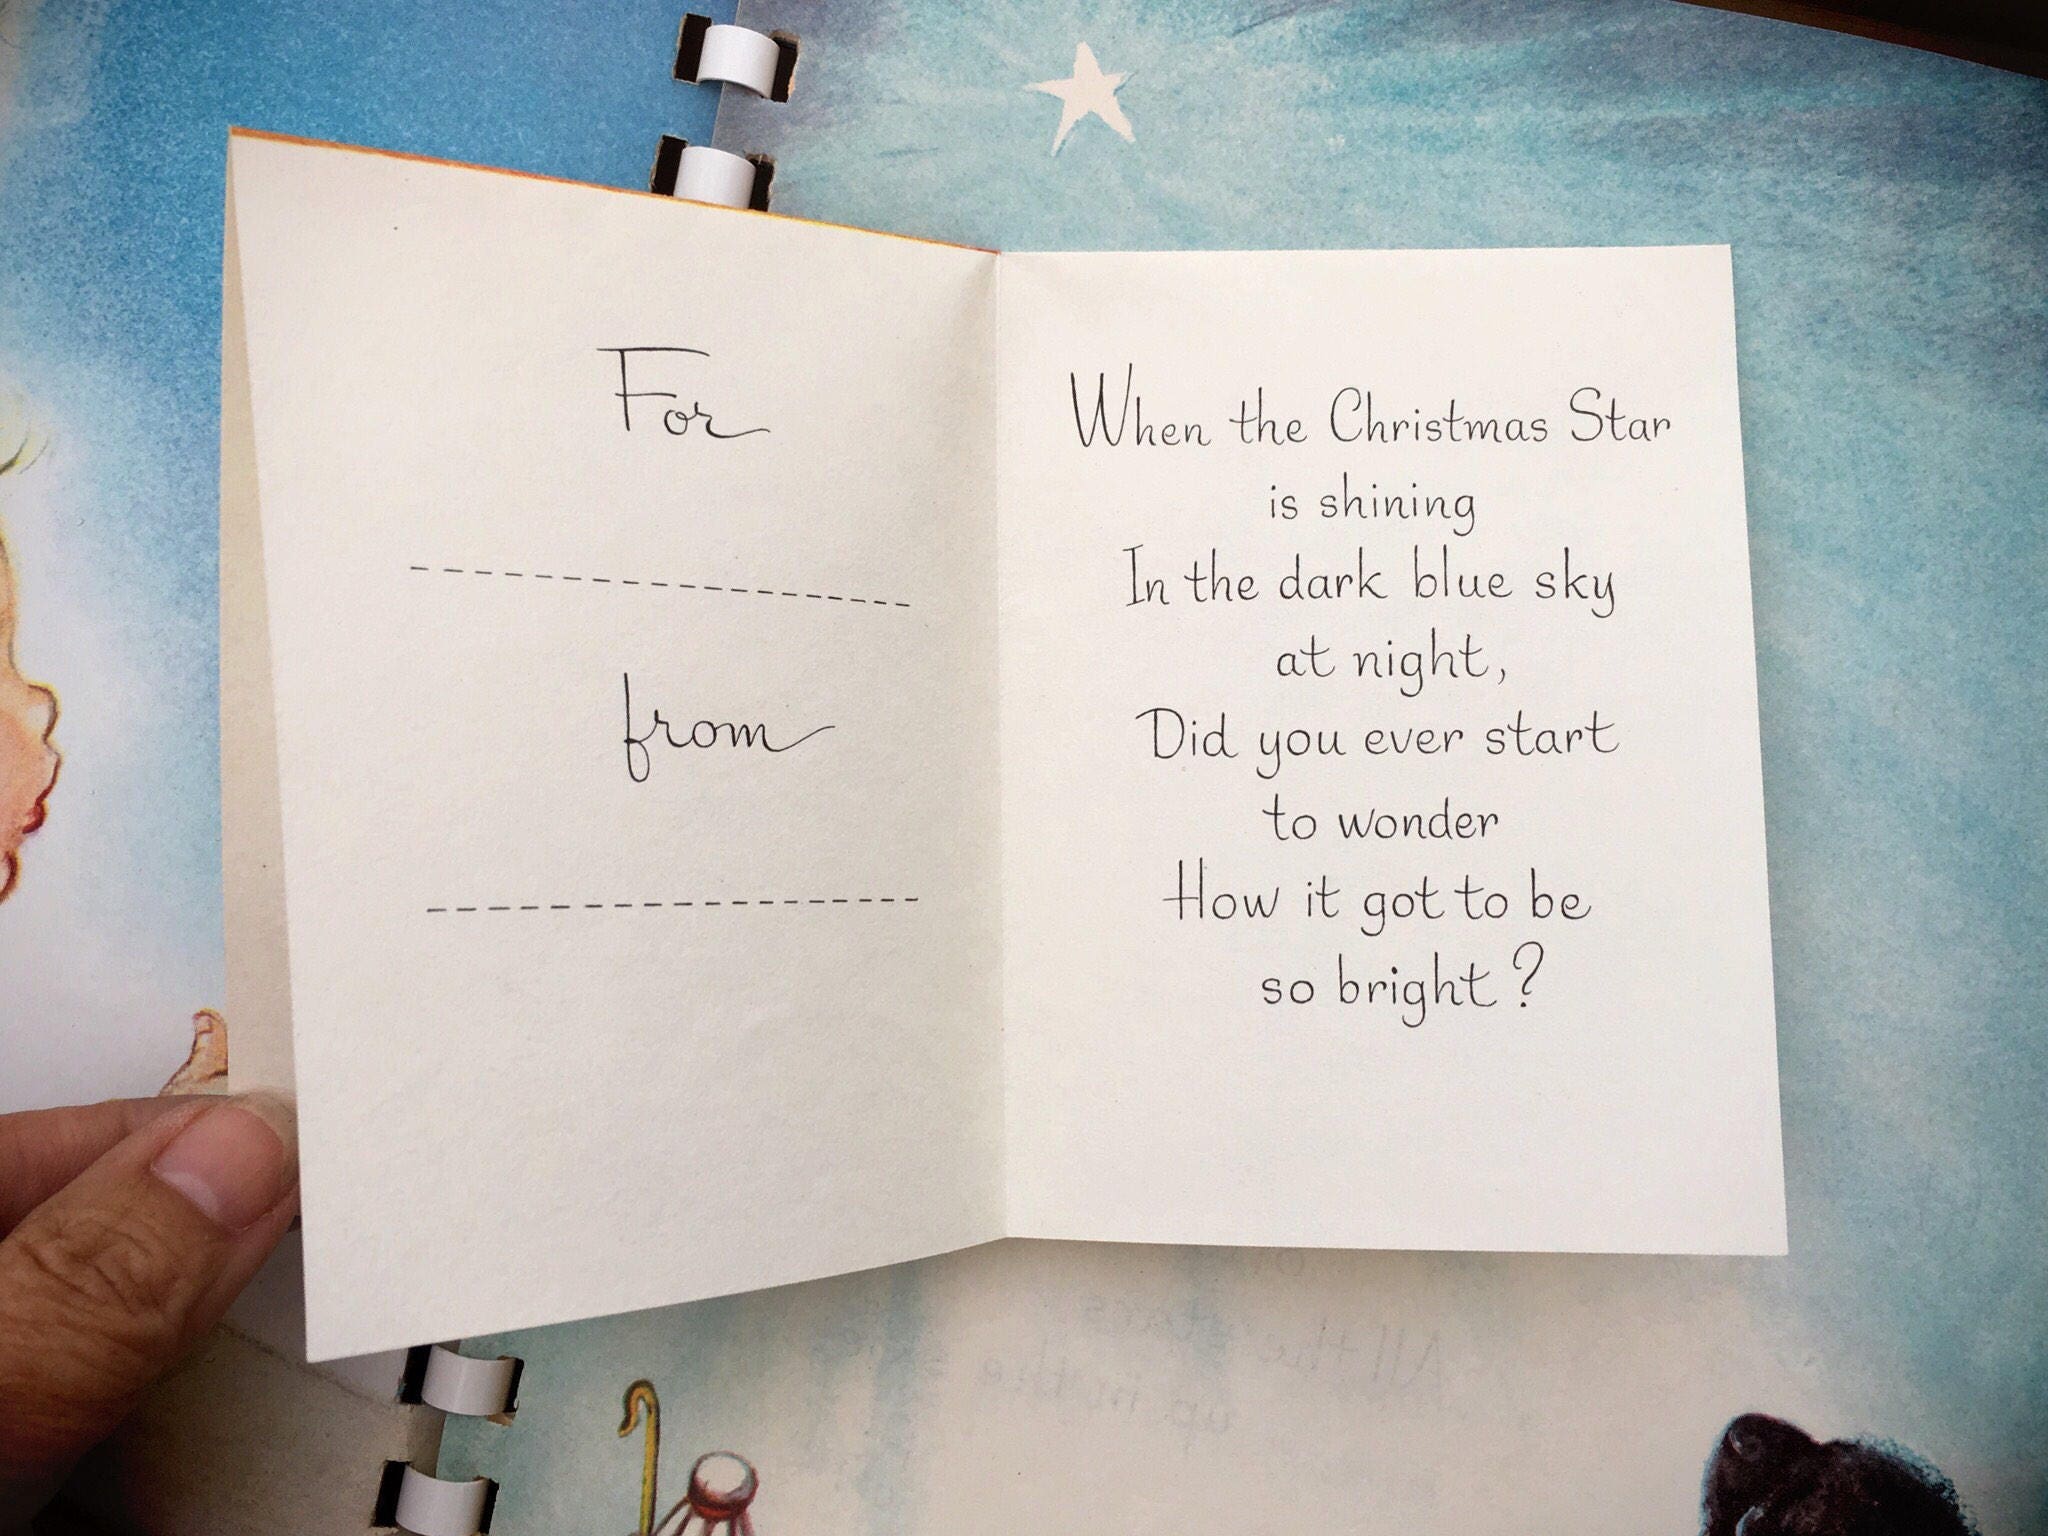 For
from
When the Christmas Star
is shining
In the dark blue sky
at night,
Did you ever start
to wonder
How it got to be
so bright?
All the stars
up in the